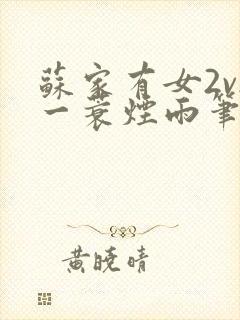 蘇家有女2v
一蓑煙雨筆
黃曉晴